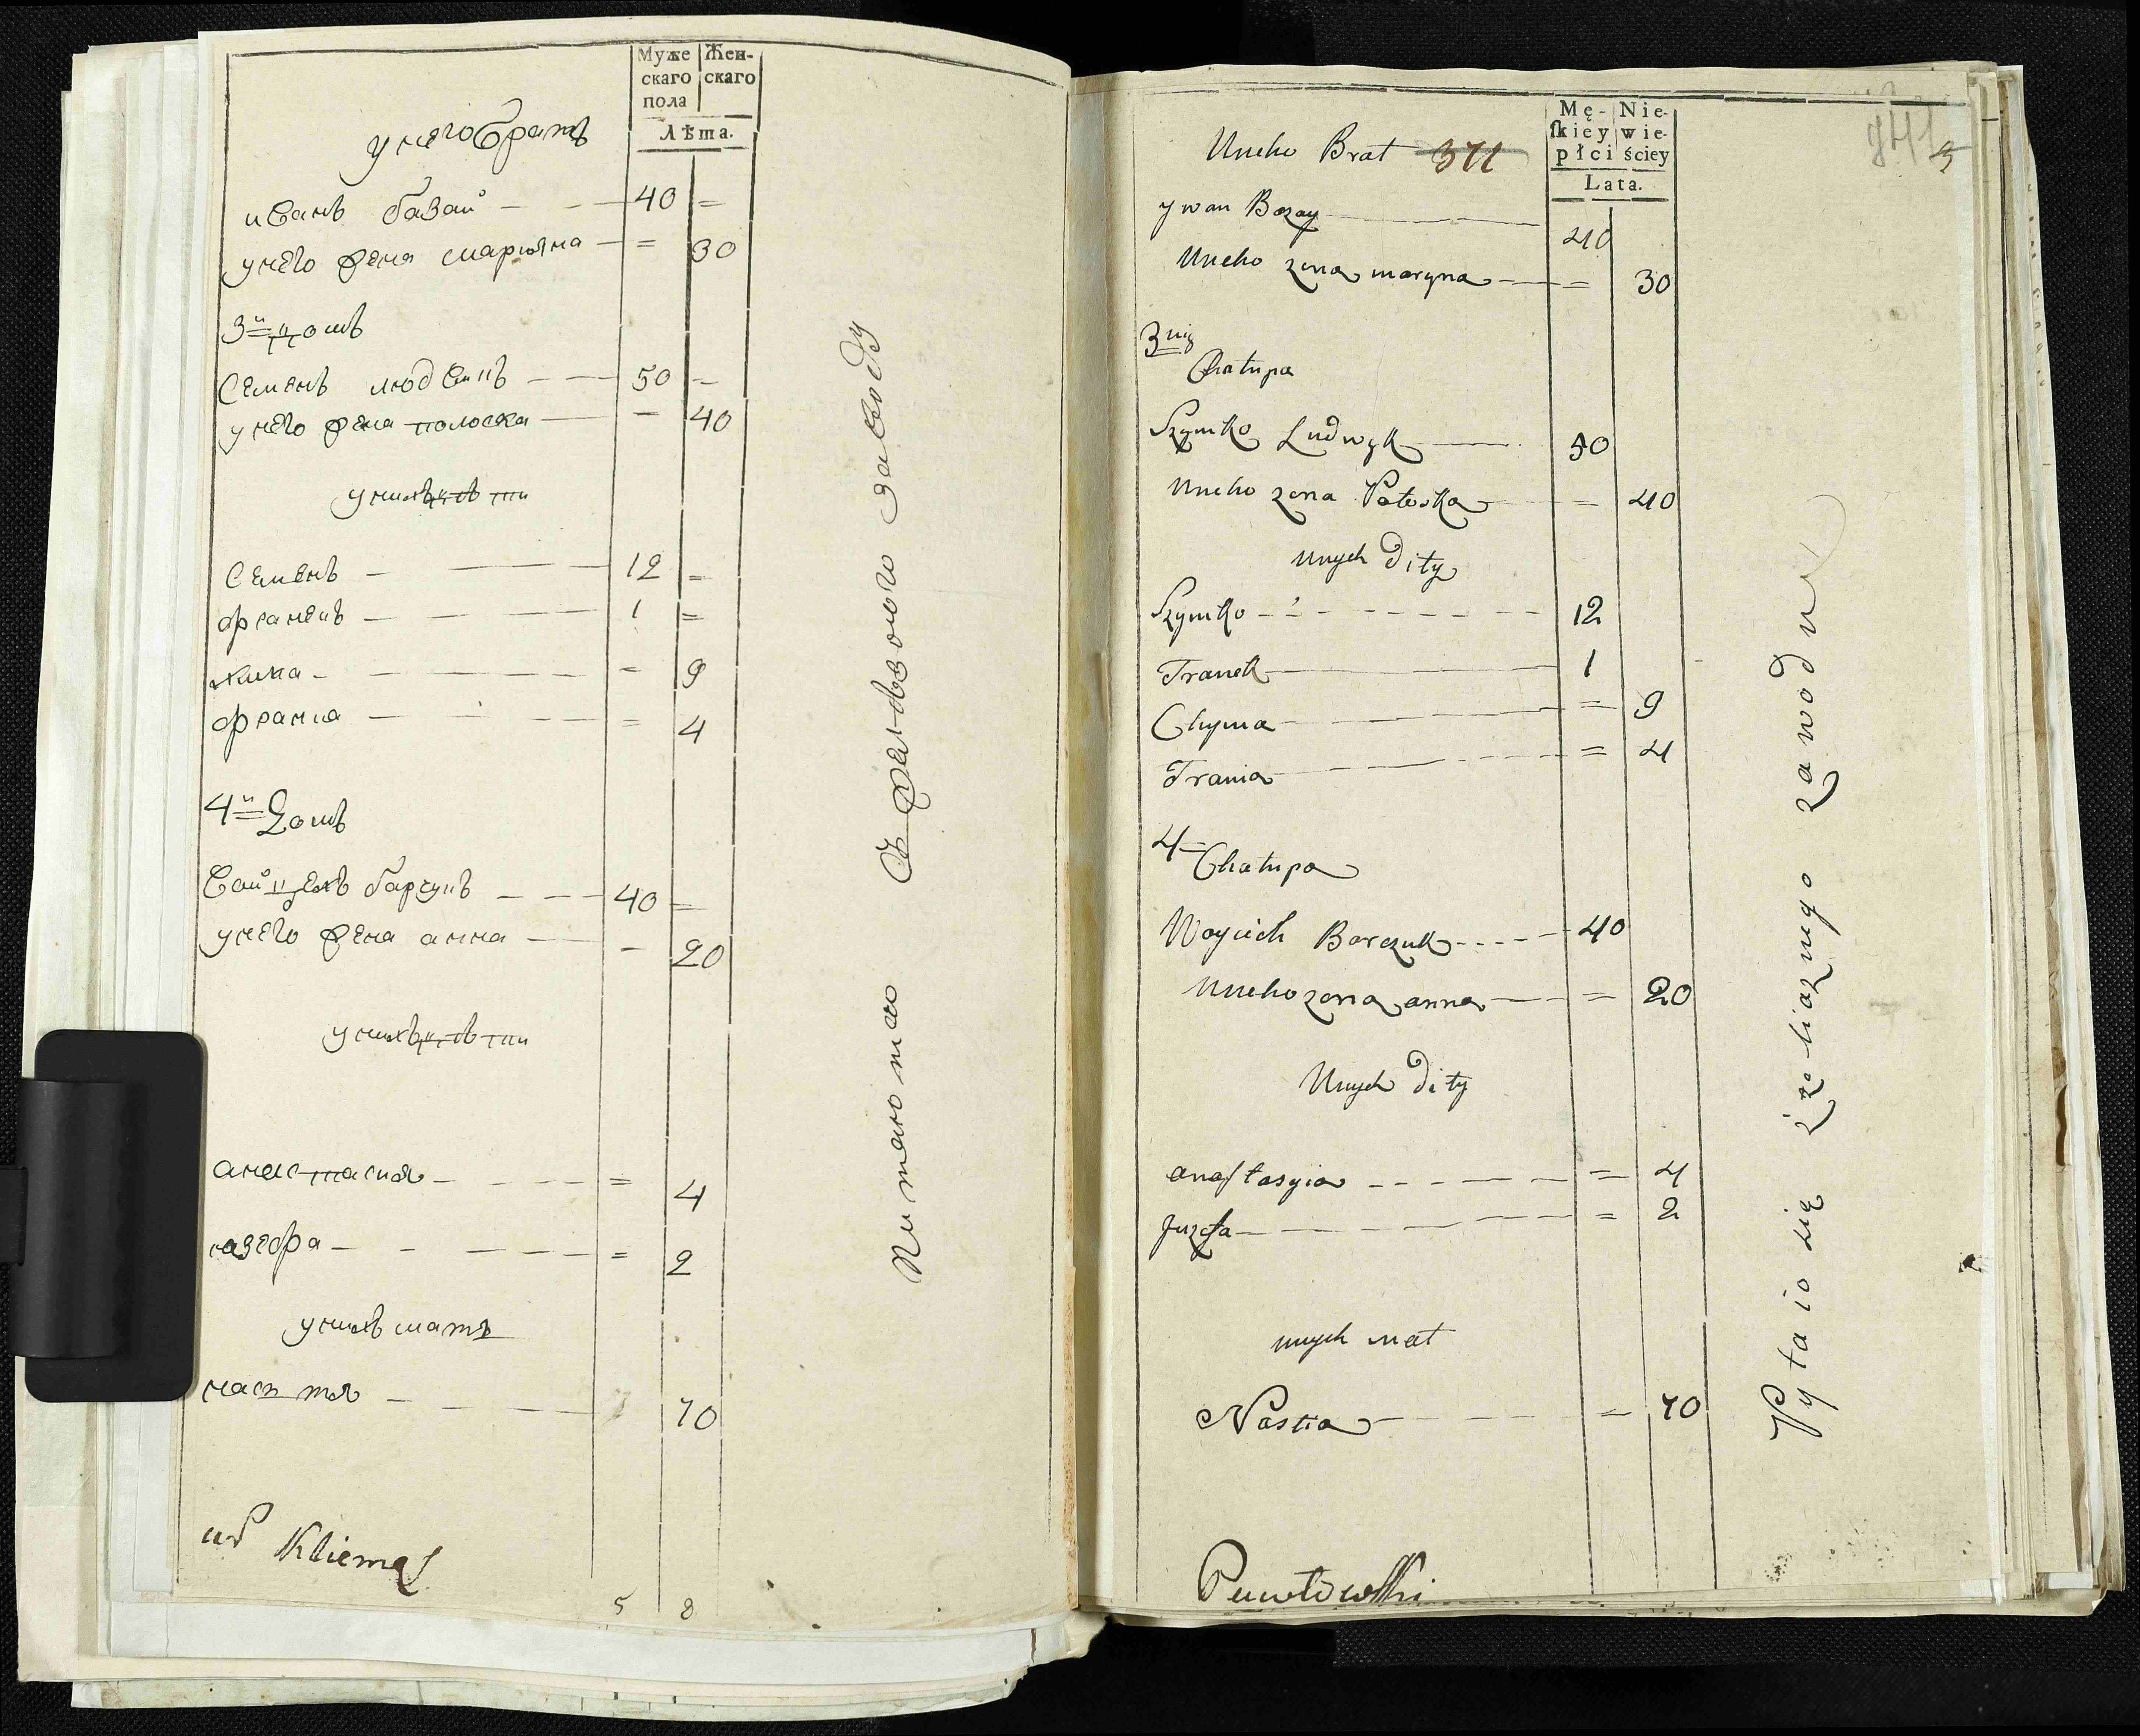 Муже Жен-
скаго скаго
пола
Лѣта.
унего братъ
иванъ базай 40 =
унего жена марияна = 30
3й домъ
Семенъ людвикъ 50 =
унего жена полоска = 40
унихъ дѣти
Семенъ 12 =
франекъ 1 =
хима = 9
франка = 4
4й домъ
войцехъ барчукъ 40 =
унего жена анна = 20
унихъ дѣти
анастасия = 4
юзефа = 2
унихъ мать
настя 70
Питаются Съ желѣзного заводу
Kliemas
5 8
Mę- Nie-
skiey wie-
płci ściey
Lata.
741
Uneho Brat 371
ywan Bazay 40
Uneho zena maryna = 30
3
Chatupa
Szymko Ludwyk 50
Uneho zena Patoska = 40
Unych Dity
Szymko 12
Franek 1
Chyma = 9
Frania = 4
4 Chatupa
Woyciech Barczuk 40
Uneho zena anna = 20
Unych Dity
anastasyia = 4
Juzefa = 2
unych mat
Nastia = 70
Pytaio się z żeliaznego zawodu